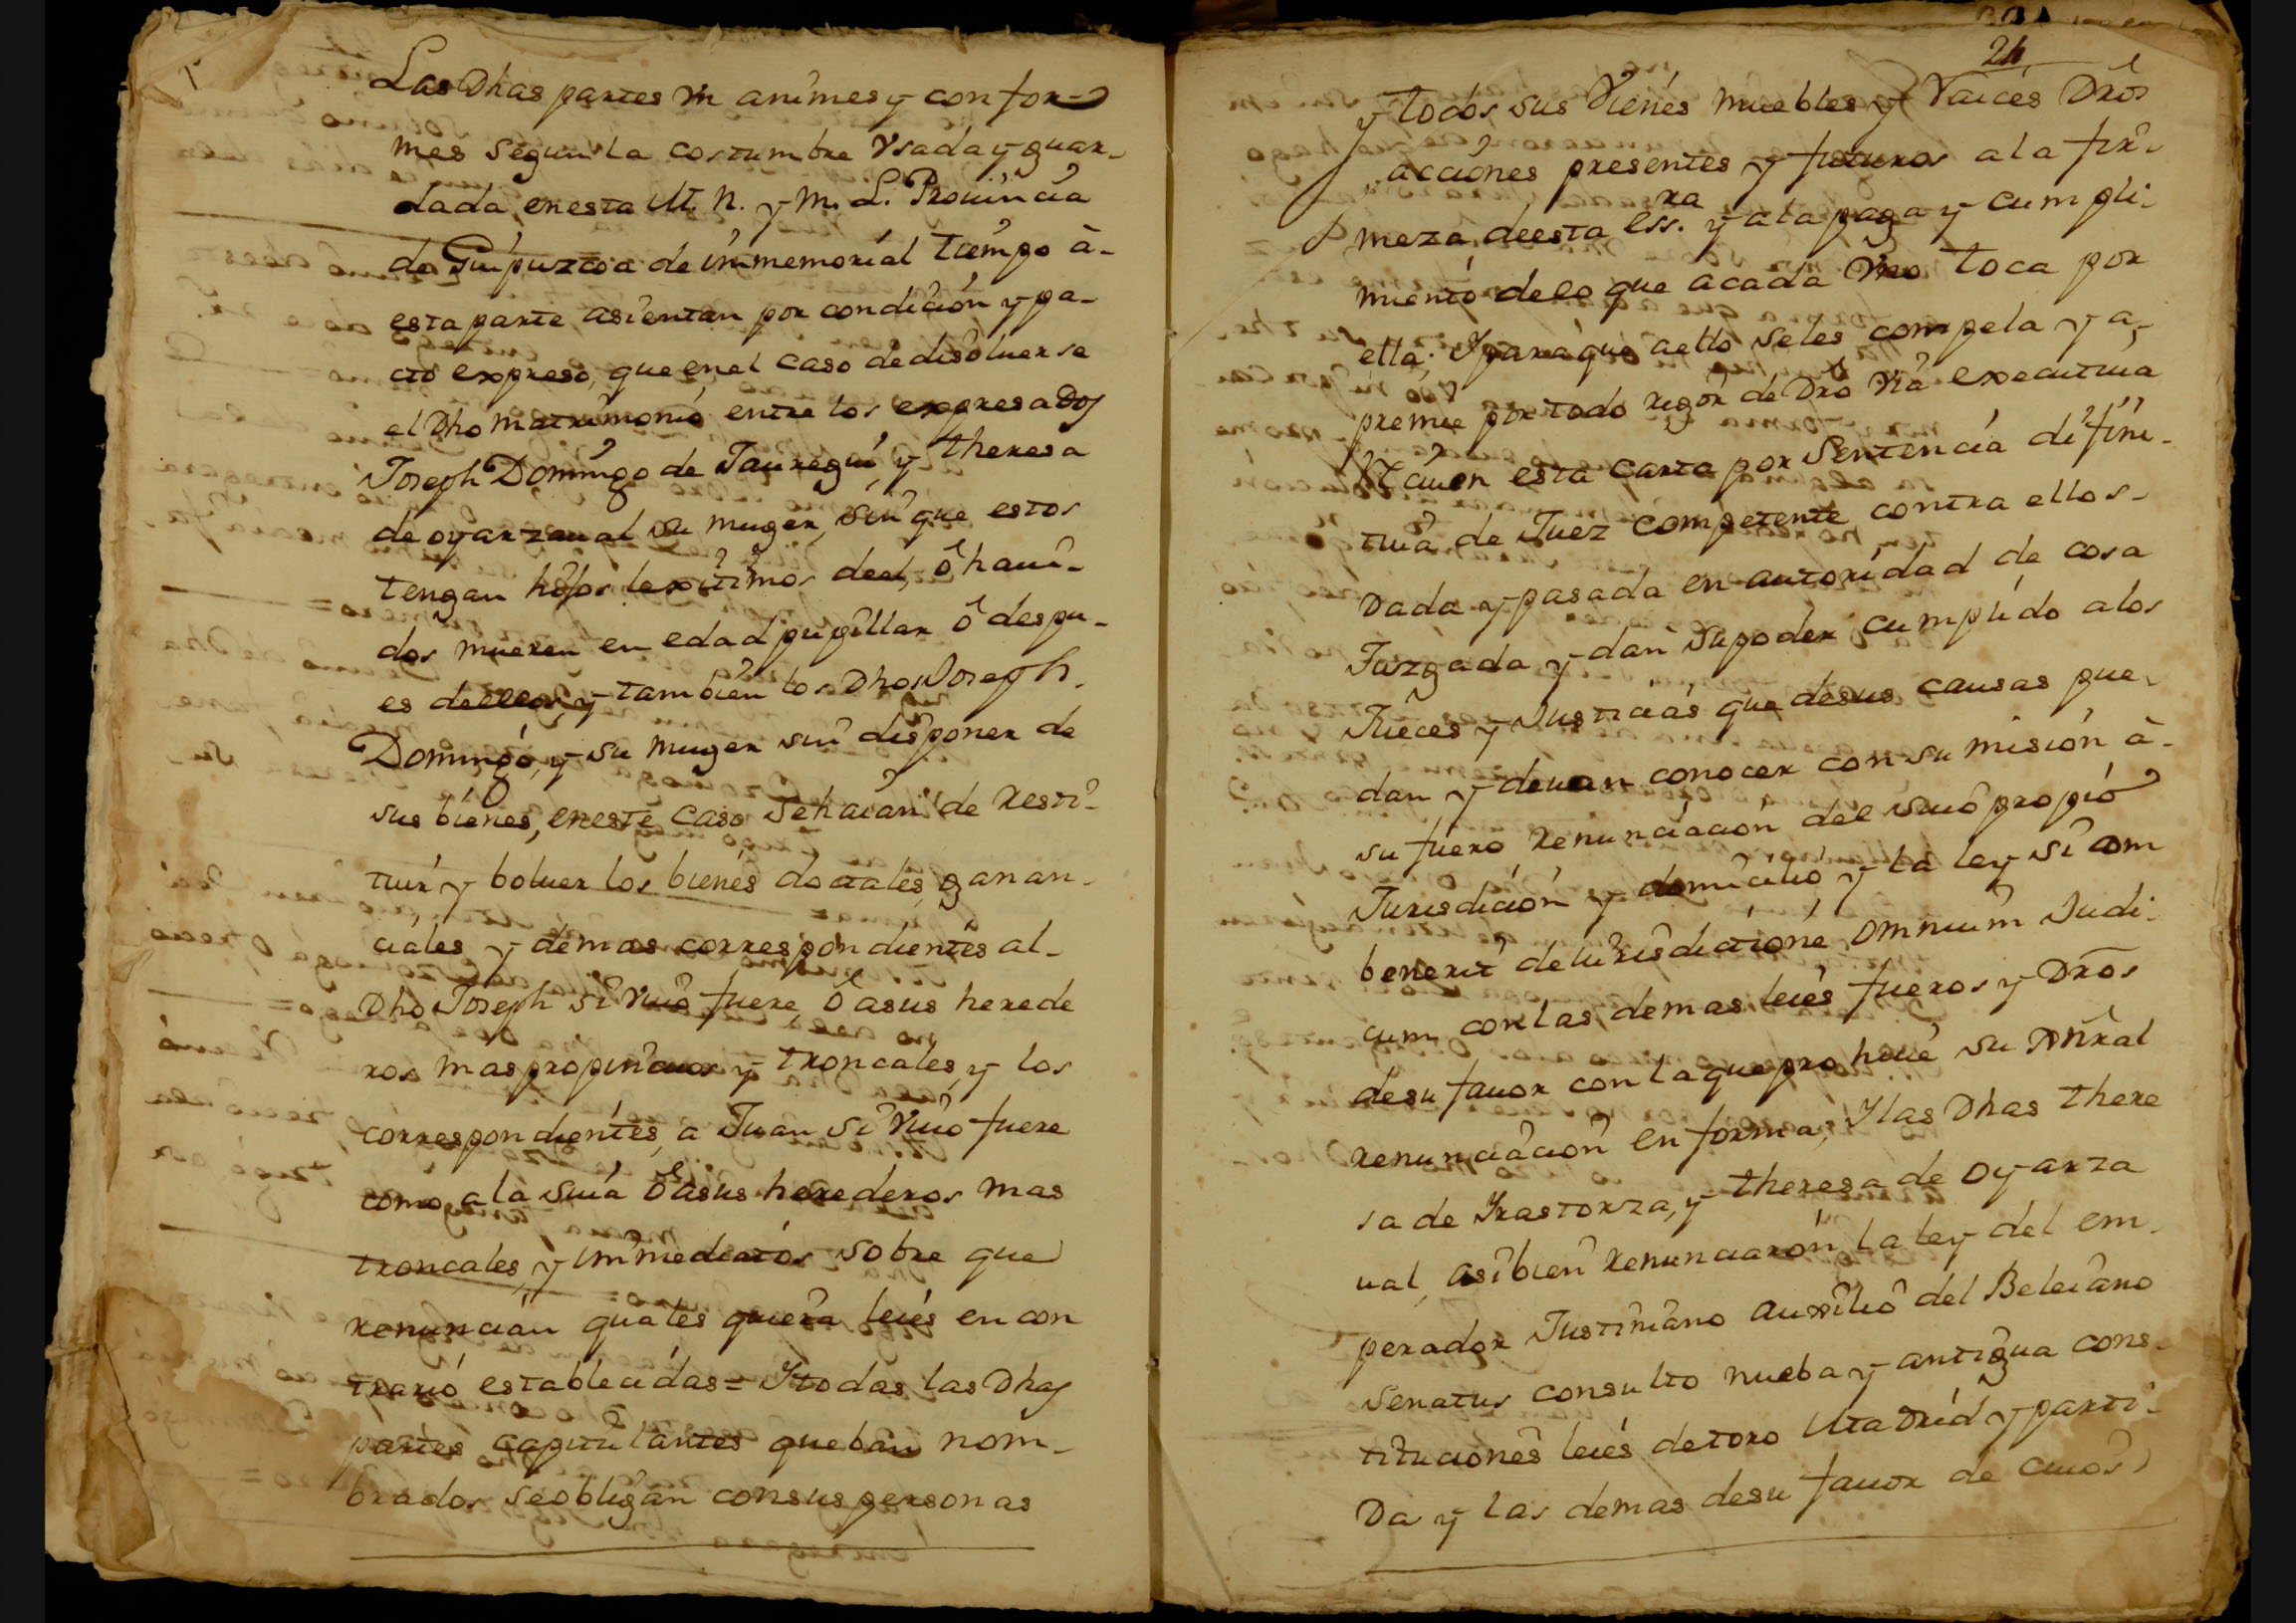 Las Dhas partes Vnanimes y confor-
mes segun la costumbre Vsada y guar-
dada, en esta M. N. y M. L. Prouincia
de Guipuzcoa de inmemorial tiempo à-
esta parte asientan por condicion y pa-
cto expreso, que en el caso de disoluerse
el Dho matrimonio entre los expresados
Joseph Domingo de Jauregui, y theresa
de oyarzaual su muger, sin que estos
tengan hijos lexitimos de el, ô haui-
dos mueren en edad pupillar ô despu-
es de ellos, y tambien los Dhos Joseph
Domingo, y su muger sin disponer de
sus bienes, en este caso se haian de resti-
tuir y boluer los bienes dotales, ganan-
ciales y demas correspondientes al-
Dho Joseph si viuo fuere, ô a sus herede
ros mas propincuos y troncales, y los
correspondientes, a Juan si viuo fuere
como a la suia ô a sus herederos mas
troncales, y immediatos sobre que
renuncian quales quiera leies en con
trario establecidas= Y todas las Dhas
partes capitulantes que ban nom-
brados se obligan con sus personas
24
y todos sus Vienes muebles y Raices Dros
acciones presentes y futuros a la fir-
meza, de esta ess.ra y a la paga y cumpli-
miento de lo que a cada Vno toca por
ella; Y para que a ello se les compela y a-
premie por todo rigor de Dro Via executiua
Reciuen esta carta por Sentencia difini-
tiua de Juez competente contra ellos-
Dada y pasada en autoridad de cosa
Juzgada y dan su poder cumplido a los
Jueces y Justicias que de sus causas pue-
dan y deuan conocer con sumision à-
su fuero renunciacion del suio propio
Jurisdicion y domicilio y la ley si com
benerit de iurisdictione omnium Judi-
cum con las demas leies fueros y Dros
de su fauor con la que prohiue su Gñral
renunciacion en forma; Y las Dhas there
sa de Yrastorza, y theresa de oyarza
ual, asibien renunciaron la ley del em-
perador Justiniano auxilio del Beleiano
Senatus consulto nueba y antigua cons-
tituciones leies de toro Madrid y parti-
Da y las demas de su fauor de cuios